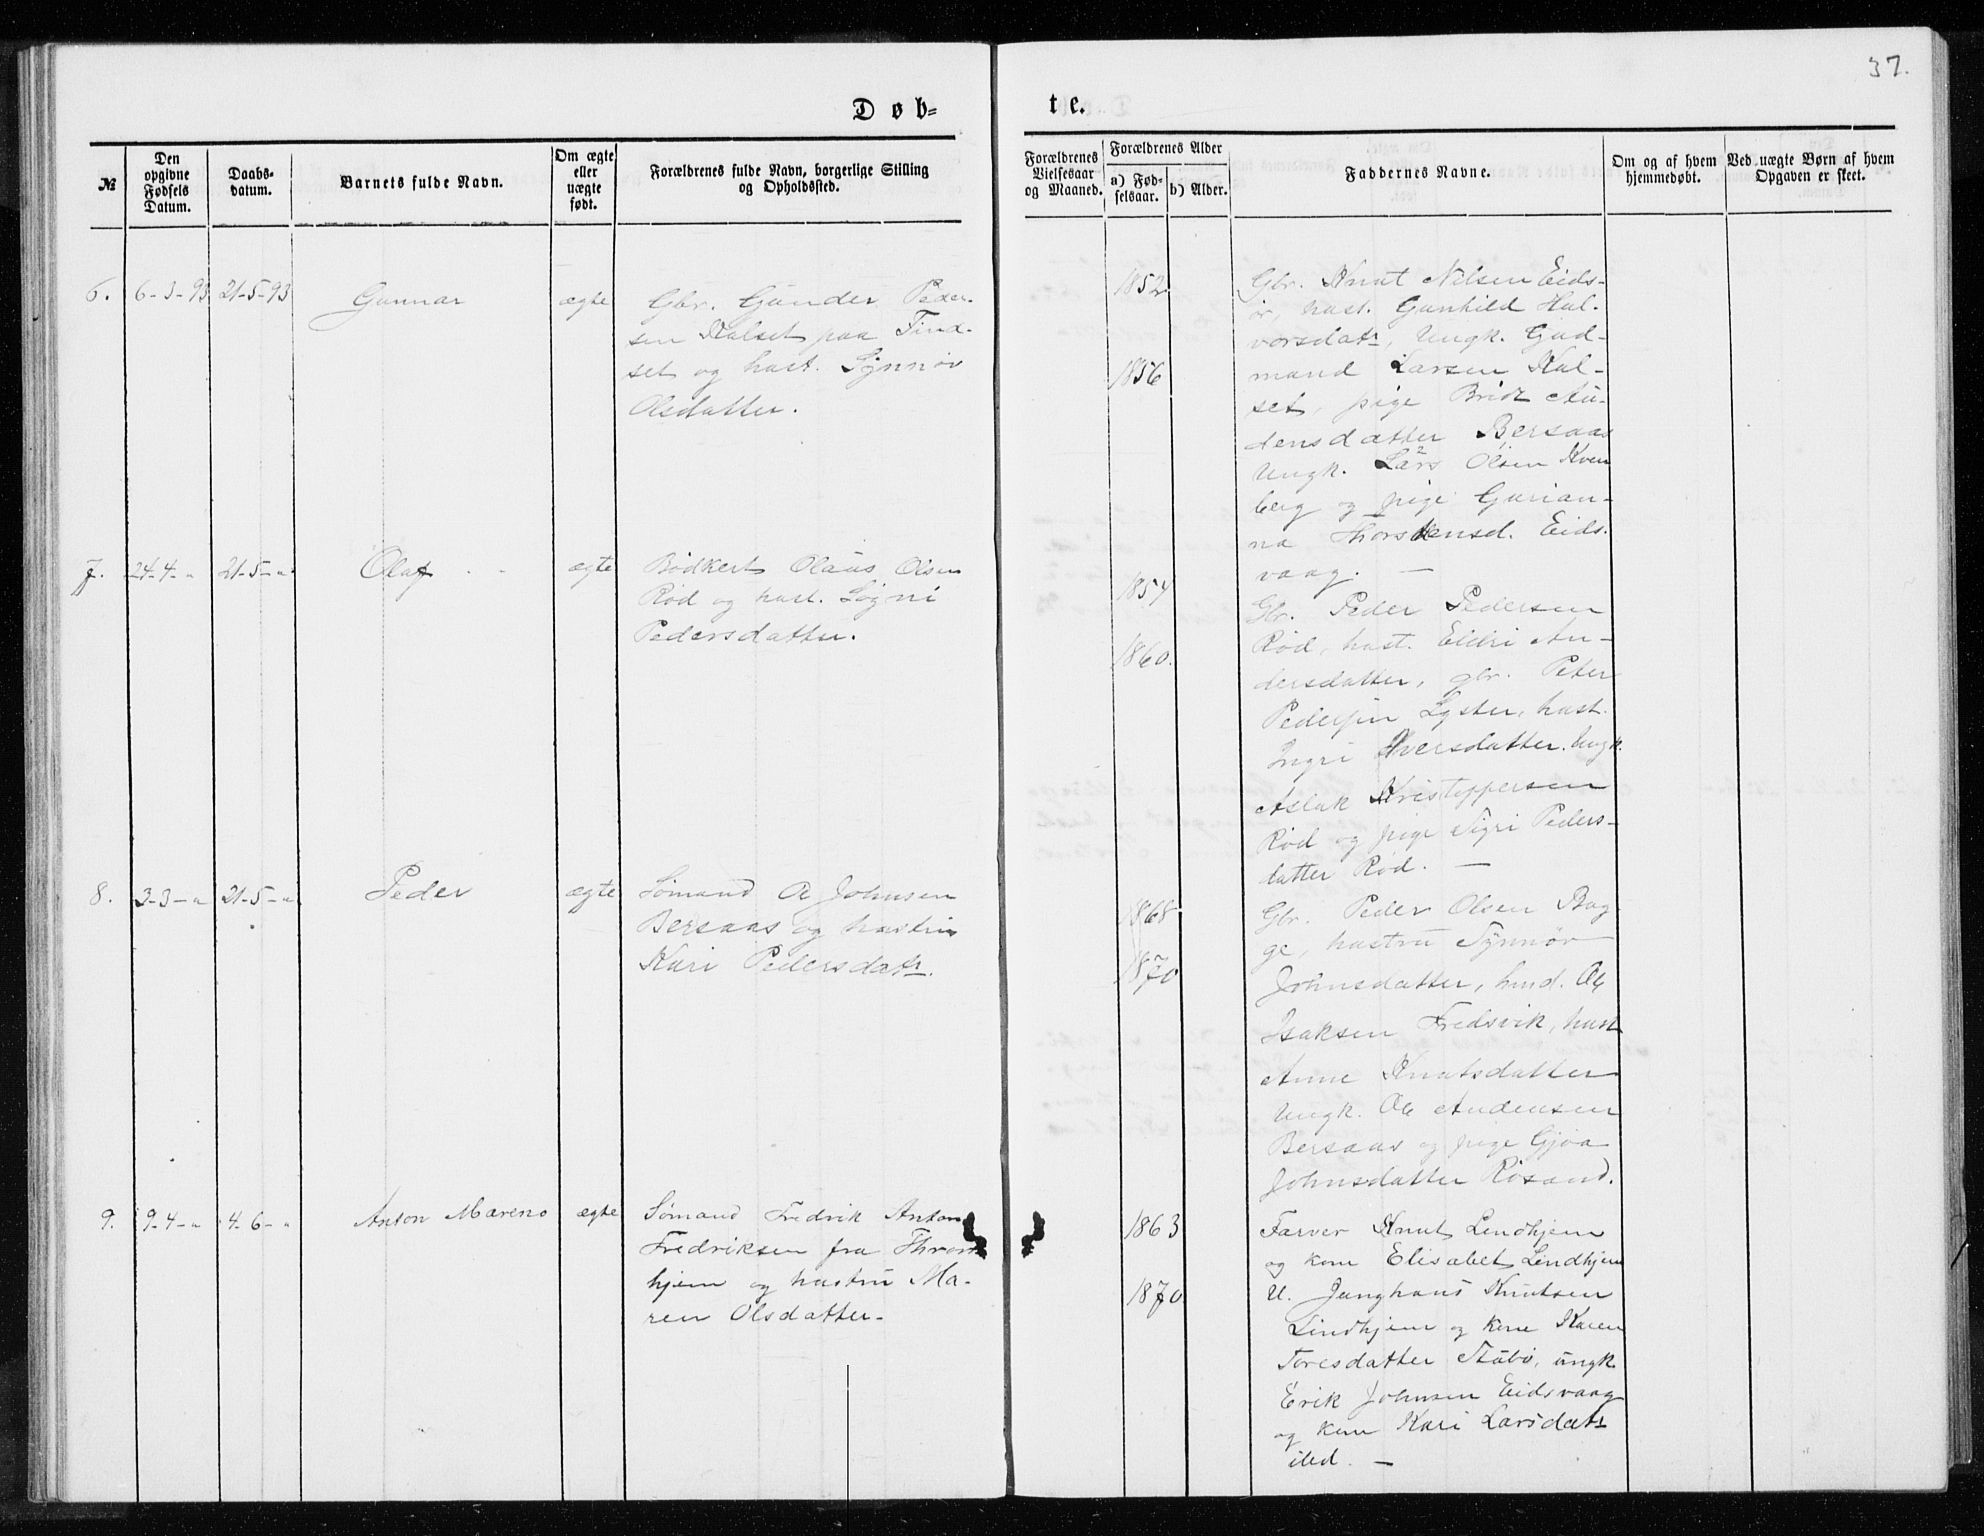 37.
Døb=
te.
№
Den
opgivne
Fødsels
Datum.
Daabs-
datum.
Barnets fulde Navn.
Om ægte
eller
uægte
født.
Forældrenes fulde Navn, borgerlige Stilling
og Opholdssted.
Forældrenes
Vielsesaar
og Maaned.
Forældrenes Alder
a) Fød-
selsaar.
b) Alder.
Faddernes Navne.
Om og af hvem
hjemmedøbt.
Ved uægte Børn af hvem
Opgaven er skeet.
6.
6-3-93
21-5-93
Gunnar
ægte
Gbr. Gunder Peder-
sen Kalset paa Tind-
set og hust. Synnøv
Olsdatter.
1852
1856
Gbr. Knut Nilsen Eids-
ør, hust. Gunhild Hal-
vorsdatr, Ungk. Gud-
mand Larsen Kal-
set, pige Brit Au-
densdatter Bersaas
Ungk. Lars Olsen Kven
berg og pige Gurian-
na Thorstensd. Eids-
vaag. —
7.
24-4-"
21-5-"
Olaf
ægte
Bødkert Olaus Olsen
Rød og hust. Signi
Pedersdatter.
1854
1860.
Gbr. Peder Pedersen
Rød, hust. Eldri An-
dersdatter, gbr. Peter
Pedersen Lyster, hust.
Ingri Iversdatter. Ungk.
Aslak Kristoppersen
Rød og pige Sigri Peders-
datter Rød. —
8.
3-3-"
21-5-"
Peder
ægte
Sømand O Johnsen
Bersaas og hustru
Kari Pedersdatr.
1868
1870
Gbr. Peder Olsen Bug-
ge, hustru Synnøv
Johnsdatter, hmd. Ole
Isaksen Fredsvik, hust
Anne Knutsdatter
Ungk. Ole Audensen
Bersaas og pige Gjøa
Johnsdatter Røsand.
9.
9-4-"
4-6-"
Anton Mareno
ægte
Sømand Fredrik Anton
Fredriksen fra Thron
hjem og hustru Ma-
ren Olsdatter.
1863
1870
Farver Knut Lindhjem
og kone Elisabet Lindhjem
U. Junghans Knutsen
Lindhjem og kone Karen
Toresdatter Stubø, ungk
Erik Johnsen Eidsvaag
og kone Kari Larsdatr
ibd. —